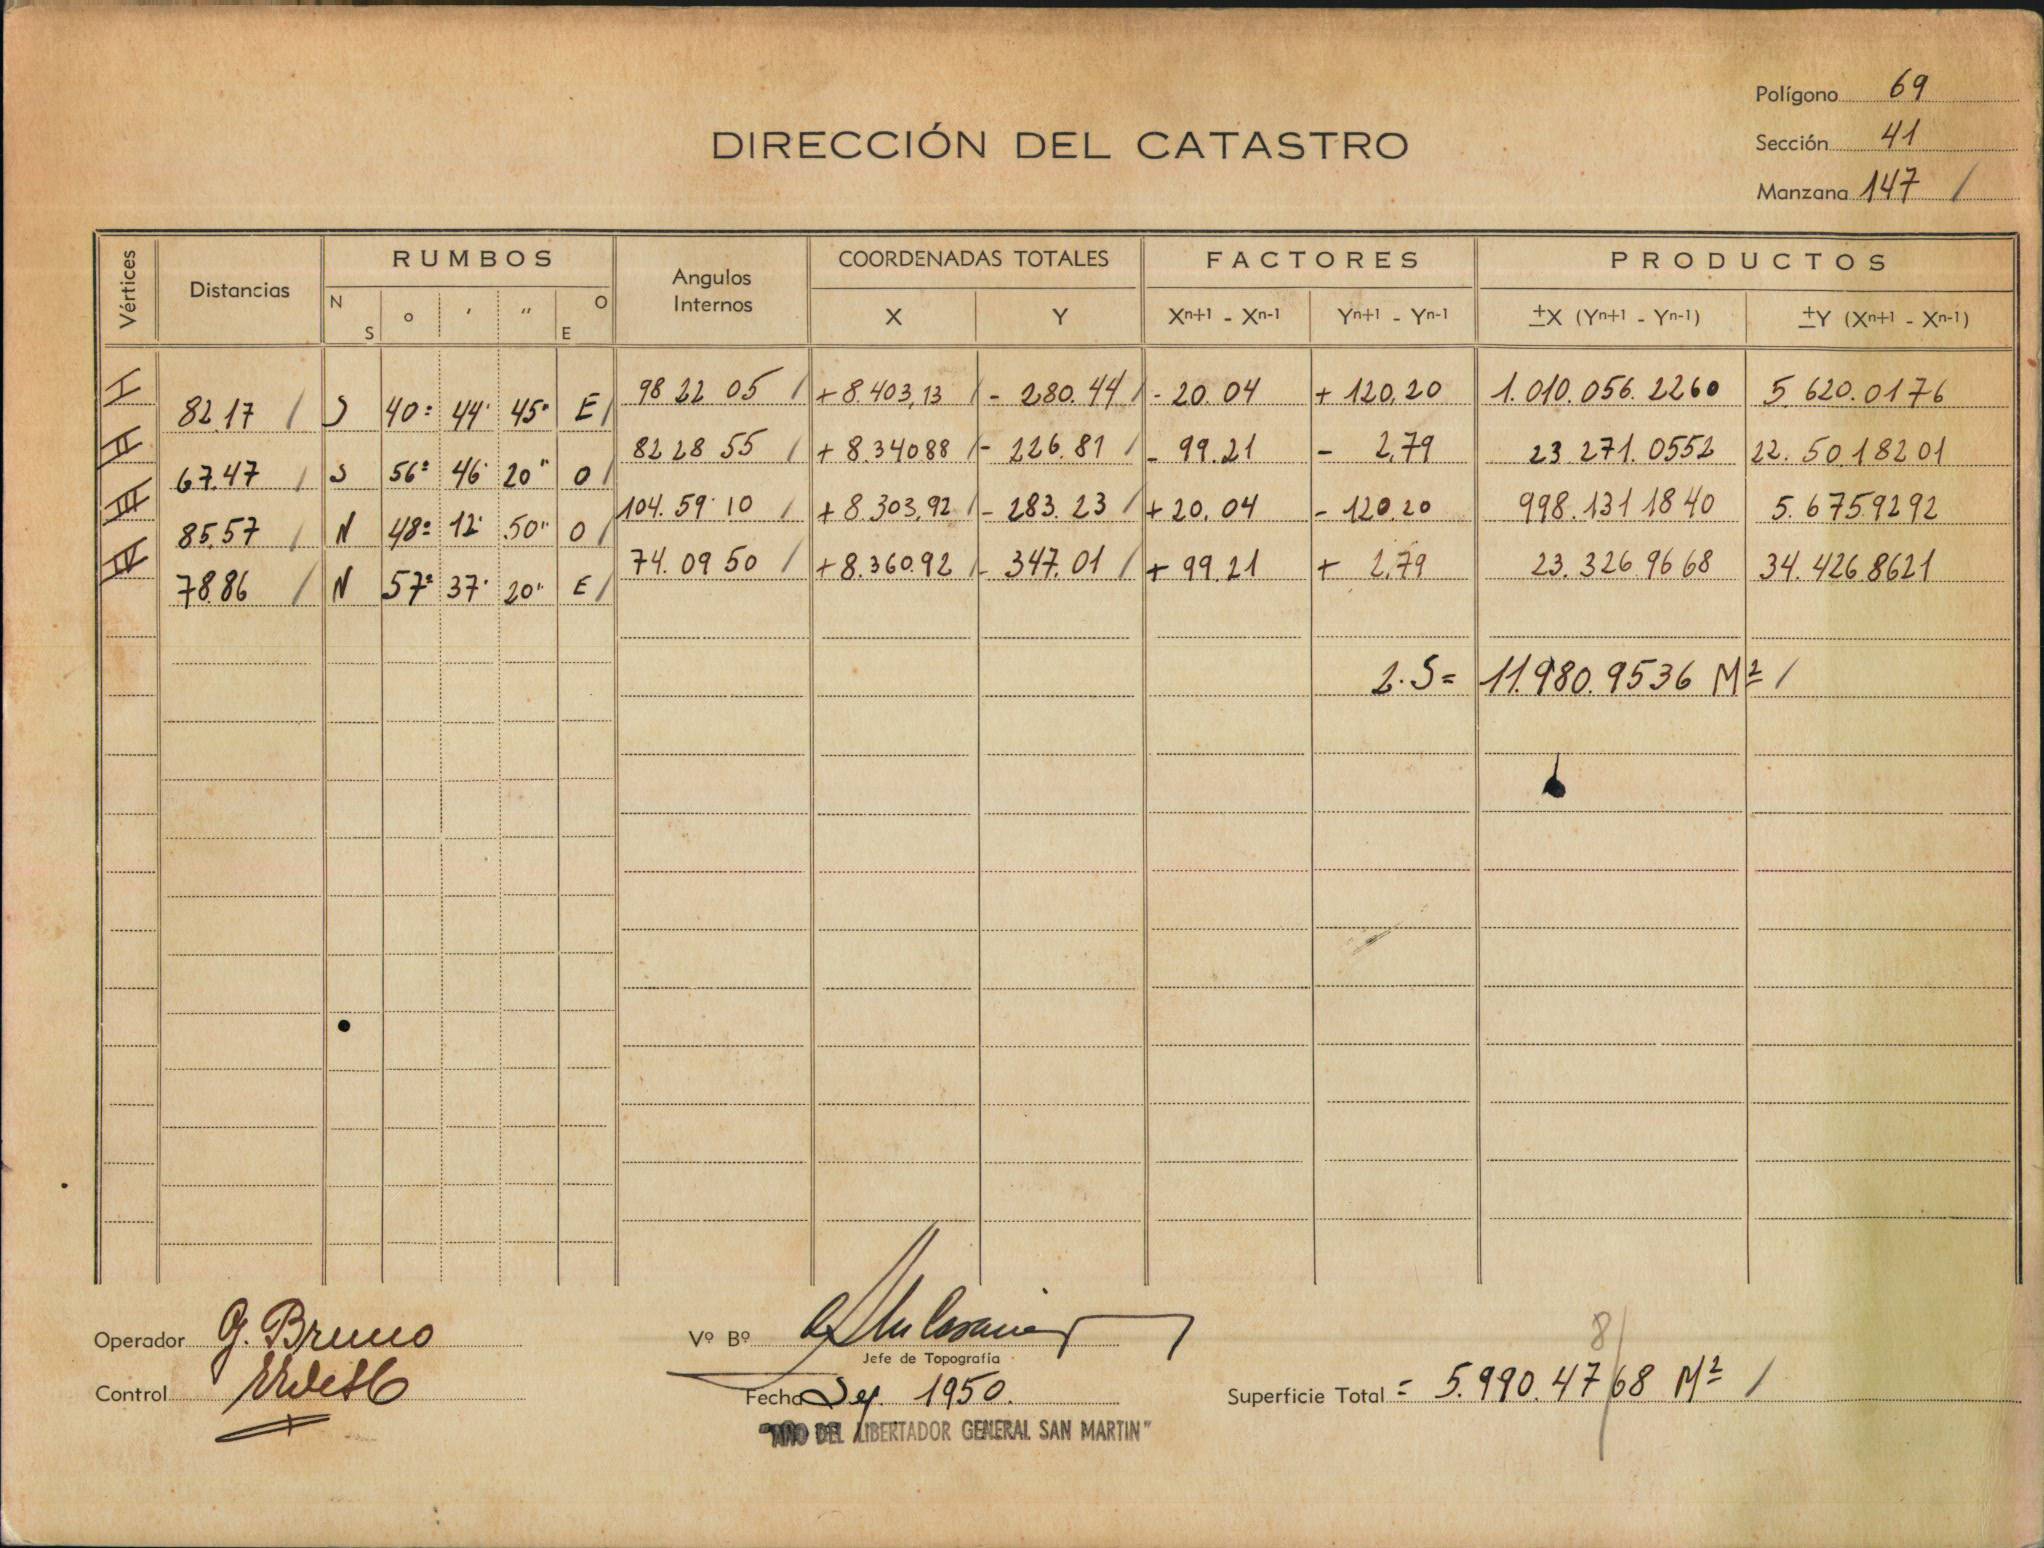 Polígono 69
DIRECCIÓN DEL CATASTRO
Sección 41
Manzana 147 /
Vértices Distancias RUMBOS Angulos Internos COORDENADAS TOTALES FACTORES PRODUCTOS
N S o ' " O E X Y Xn+1 - Xn-1 Yn+1 - Yn-1 ±X (Yn+1 - Yn-1) ±Y (Xn+1 - Xn-1)
I 98 22 05 / + 8.403,13 / - 280.44 / - 20.04 + 120,20 1.010.056.2260 5.620.0176
82.17 / S 40º 44' 45" E /
II 82 28 55 / + 8.340 88 / - 226.81 / - 99.21 - 2,79 23 271.0552 22.50.18201
67.47 / S 56º 46' 20" O /
III 104.59'10 / + 8.303,92 / - 283.23 / + 20.04 - 120.20 998.131 1840 5.6759292
85.57 / N 48º 12' 50" O /
IV 74.09 50 / + 8.360.92 / - 347.01 / + 99.21 + 2,79 23.326.9668 34.426.8621
78.86 / N 57º 37' 20" E /
2.S= 11.980.9536 M² /
Operador G. Bruno
Vº Bº
Jefe de Topografía
8
Control
Fecha Sep. 1950.
Superficie Total = 5.990.47/68 M² /
"AÑO DEL LIBERTADOR GENERAL SAN MARTIN"